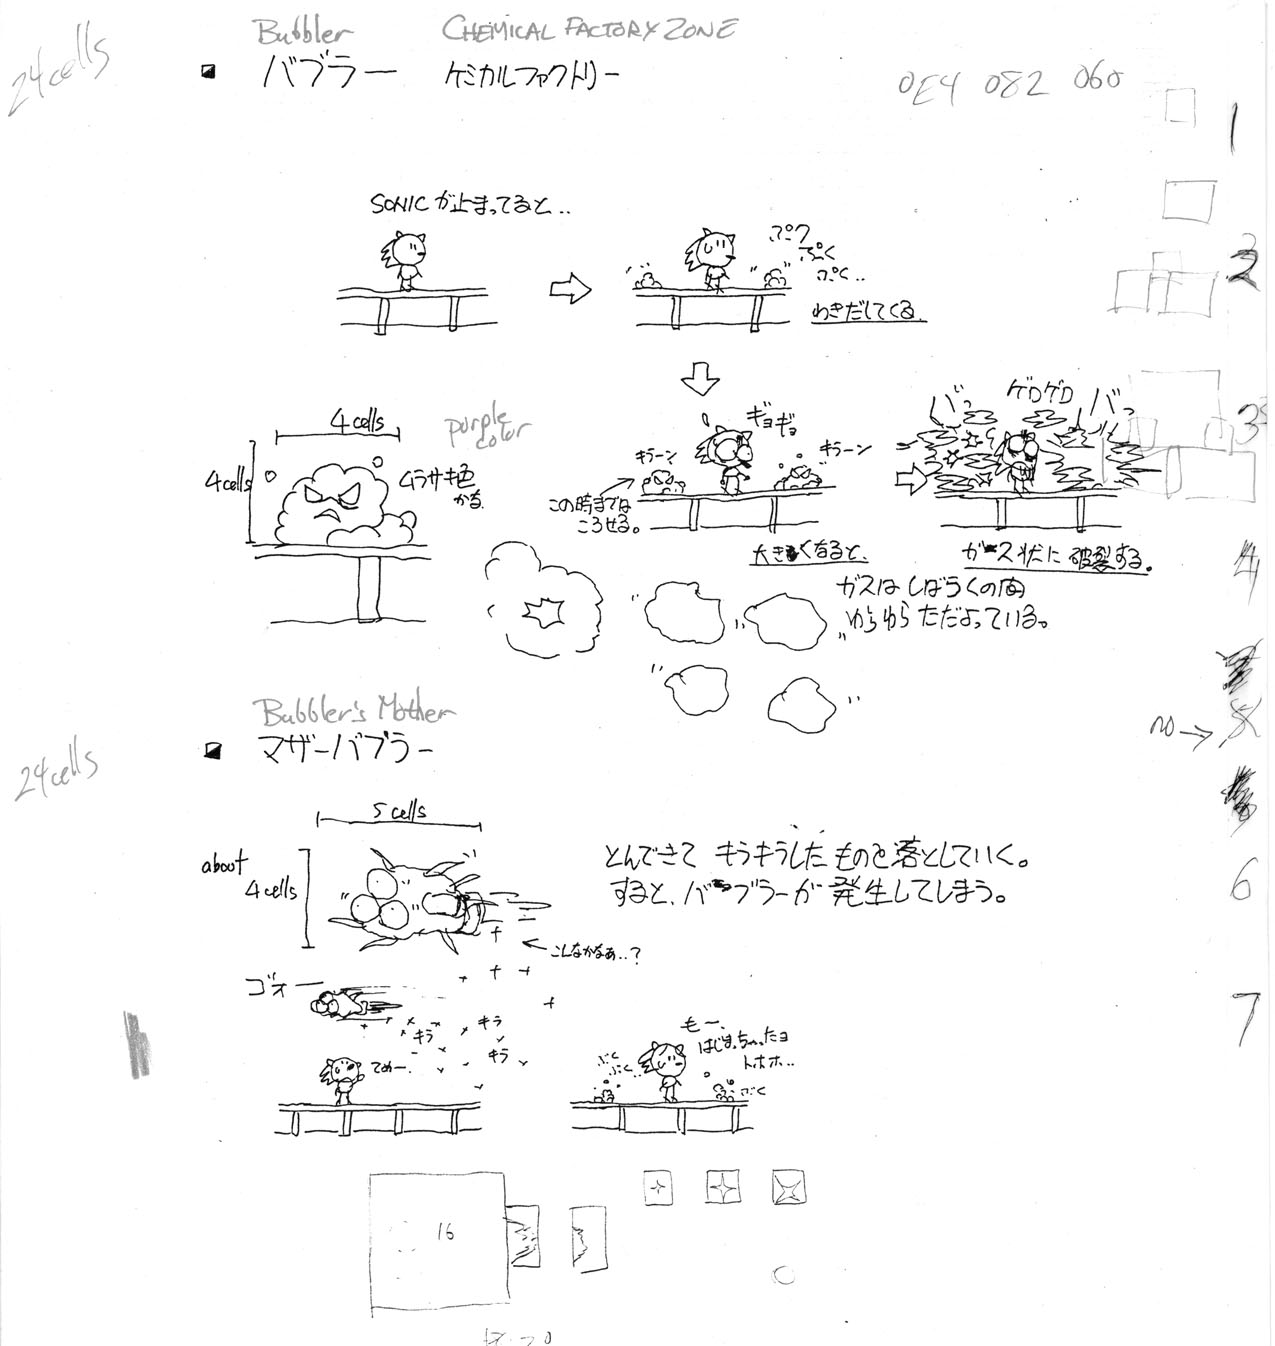 24cells
Bubbler CHEMICAL FACTORY ZONE
バブラー ケミカルファクトリー
0E4 082 060
1
SONICが止まってると..
ぷク
ぷく
ぷく..
わきだしてくる.
2
4cells
4cells
purple
color
ムラサキ色
かる.
ギョ
ギョ
キラーン
キラーン
この時までは
ころせる。
大きくなると、
バッ
ゲロゲロ
バッ
ガース状に破裂する。
3
ガスはしばらくの間
ゆらゆらただよっている。
4
Bubbler's Mother
マザーバブラー
24cells
no→
5 cells
about
4cells
とんできて キラキラしたものを落としていく。
すると、バブラーが発生してしまう。
こんなかなぁ..?
6
ゴォー
キラ
キラ
キラ
てめー.
ぷく
ぷく..
もー、
はじまっちゃったヨ
トホホ...
ぷく
7
16